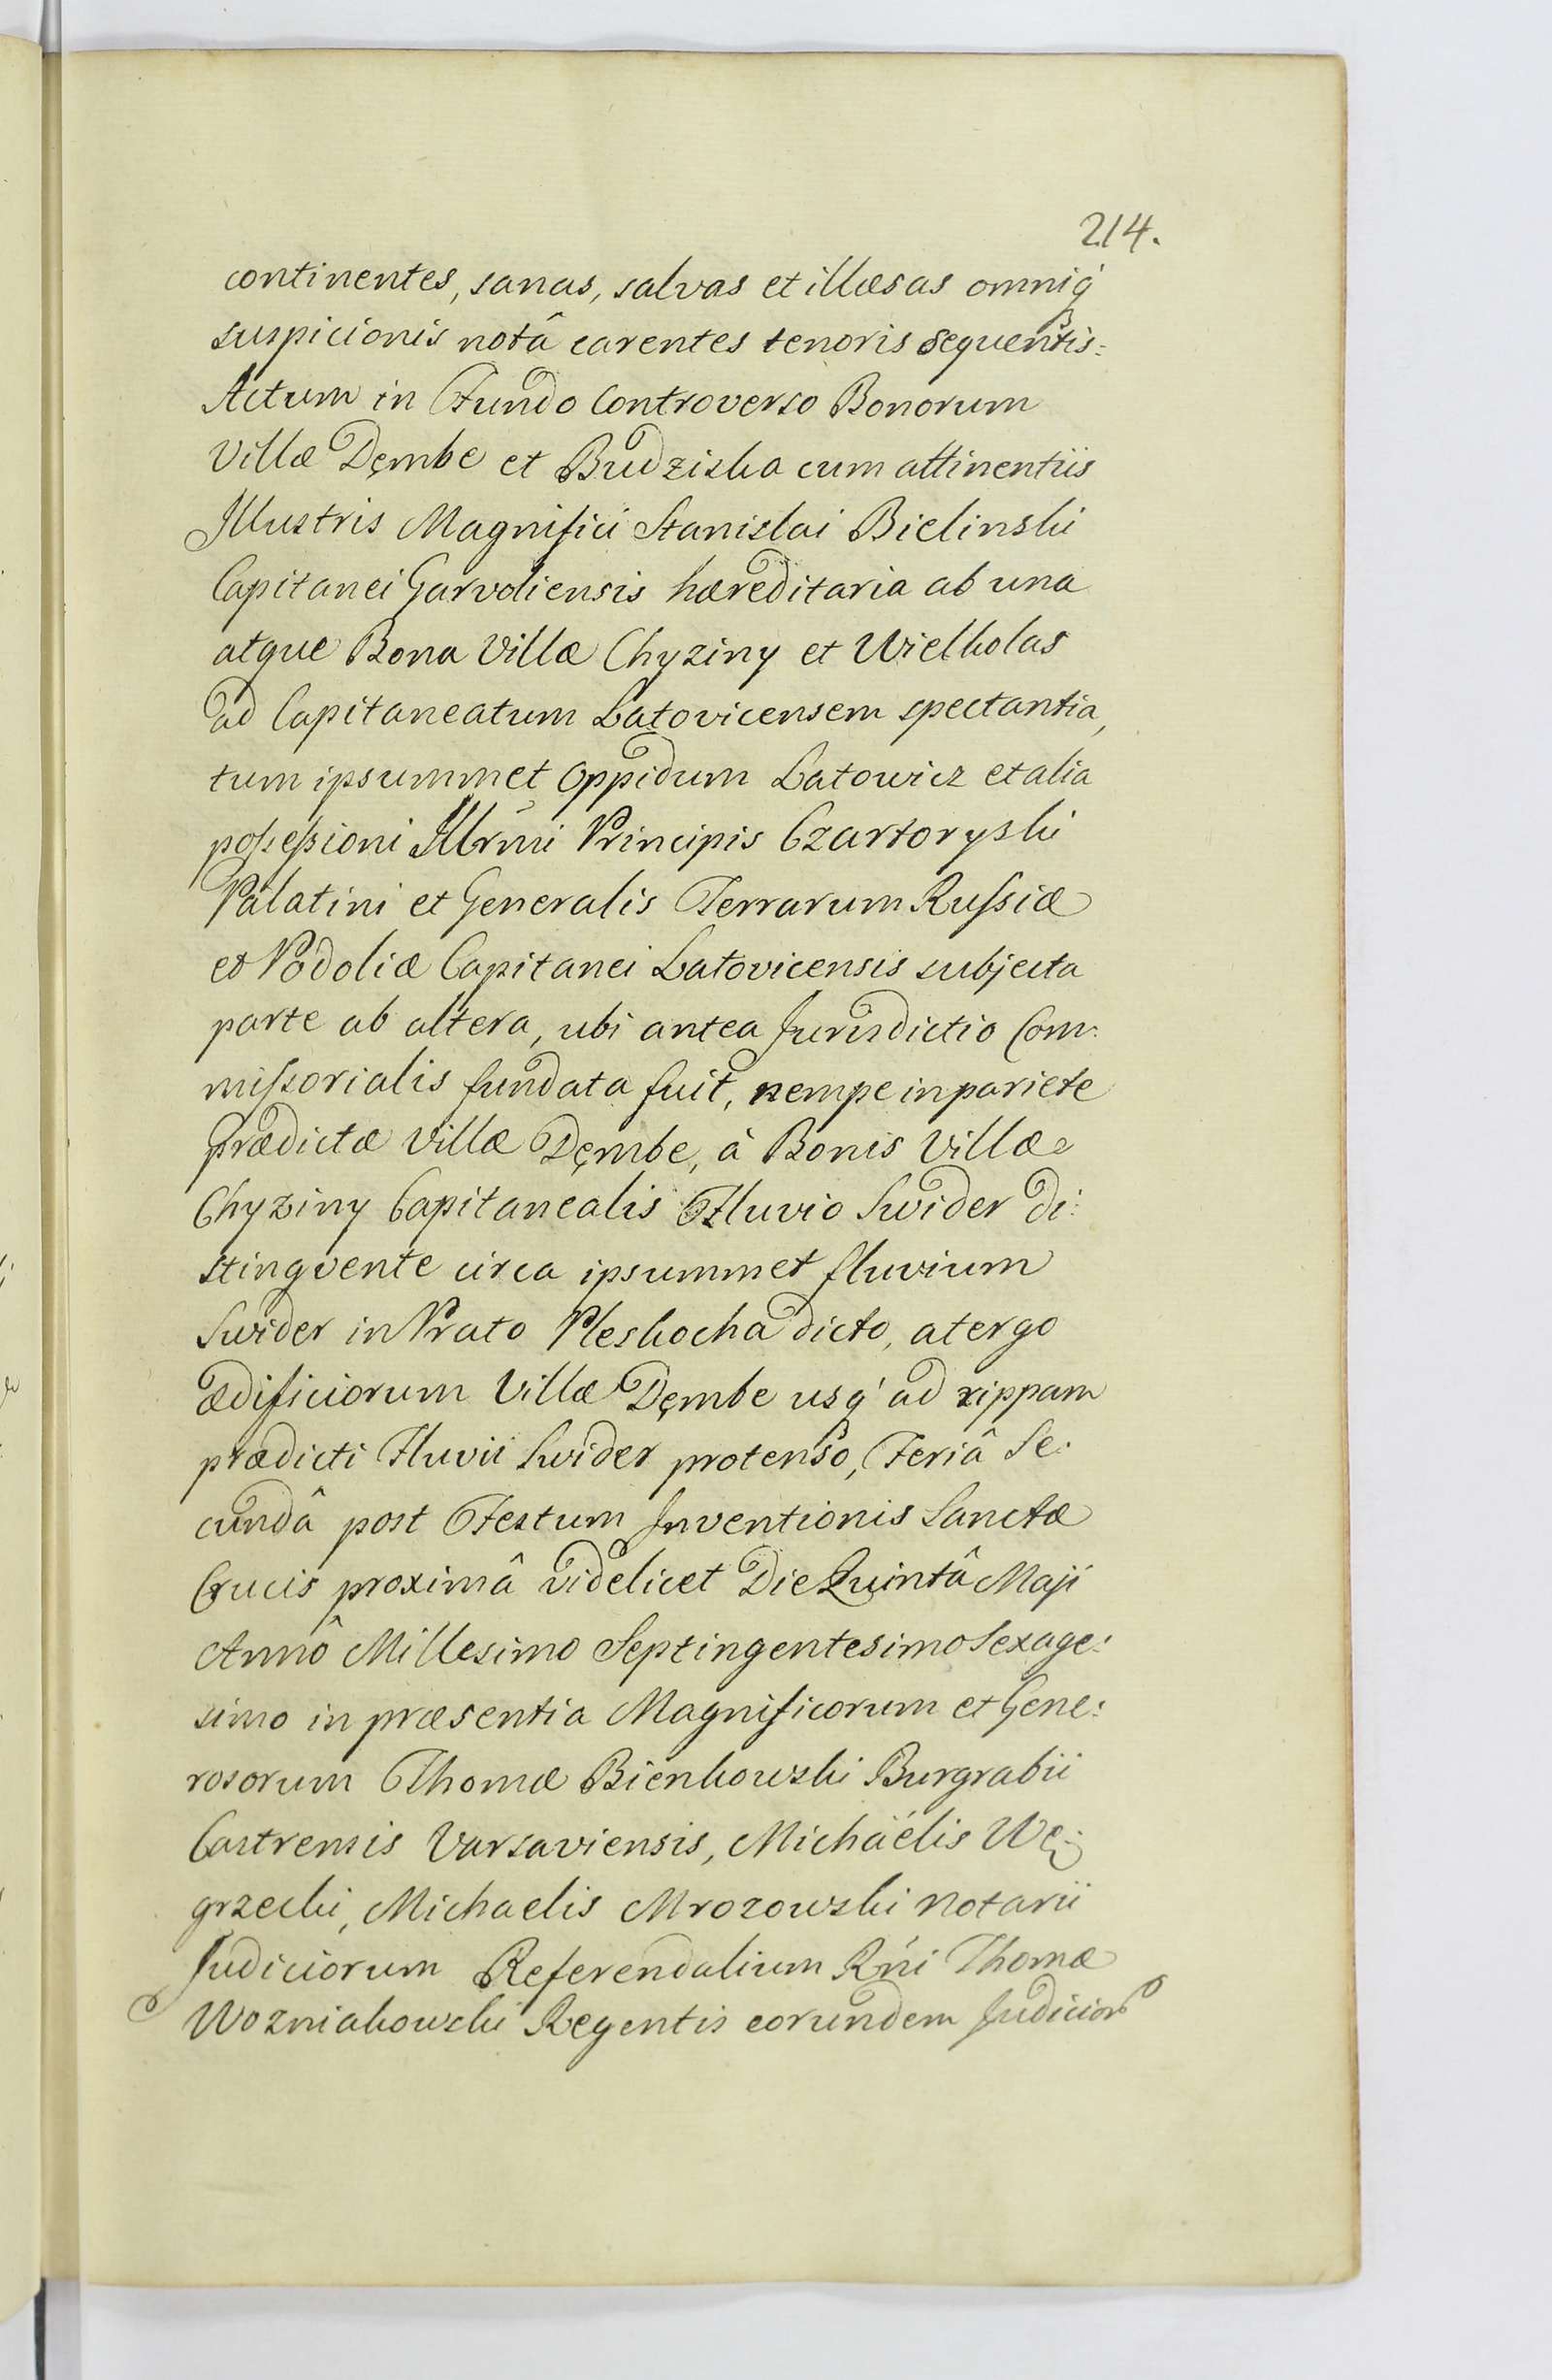 214.
continentes, sanas, salvas et illæsas omniq́
suspicionis notâ carentes tenoris sequentis:
Actum in Fundo Controverso Bonorum
Villæ Dęmbe et Budziska cum attinentiis
Illustris Magnifici Stanislai Bielinski
Capitanei Garvoliensis hæreditaria ab una
atque Bona Villæ Chyziny et Wielkolas
ad Capitaneatum Latovicensem spectantia,
tum ipsummet Oppidum Latowicz et alia
possessioni Illrm̃i Principis Czartoryski
Palatini et Generalis Terrarum Russiæ
et Podoliæ Capitanei Latovicensis subjecta
parte ab altera, ubi antea Jurisdictio Com:
missorialis fundata fuit, nempe in pariete
prædictæ Villæ Dęmbe, à Bonis Villæ
Chyziny Capitanealis Fluvio Swider di:
stingvente circa ipsummet fluvium
Swider in Prato Pleskocha dicto, a tergo
ædificiorum Villæ Dęmbe usq́ ad rippam
prædicti Fluvii Swider protenso, Feriâ Se:
cundâ post Festum Inventionis Sanctæ
Crucis proximâ videlicet Die Quintâ Maji
Annô Millesimo Septingentesimo Sexage:
simo in præsentia Magnificorum et Gene:
rosorum Thomæ Bienkowski Burgrabii
Castrensis Varsaviensis, Michäélis Wę:
grzecki, Michaelis Mrozowski Notarii
Judiciorum Referendalium Rńi Thomæ
Wozniakowski Regentis eorundem Judicior